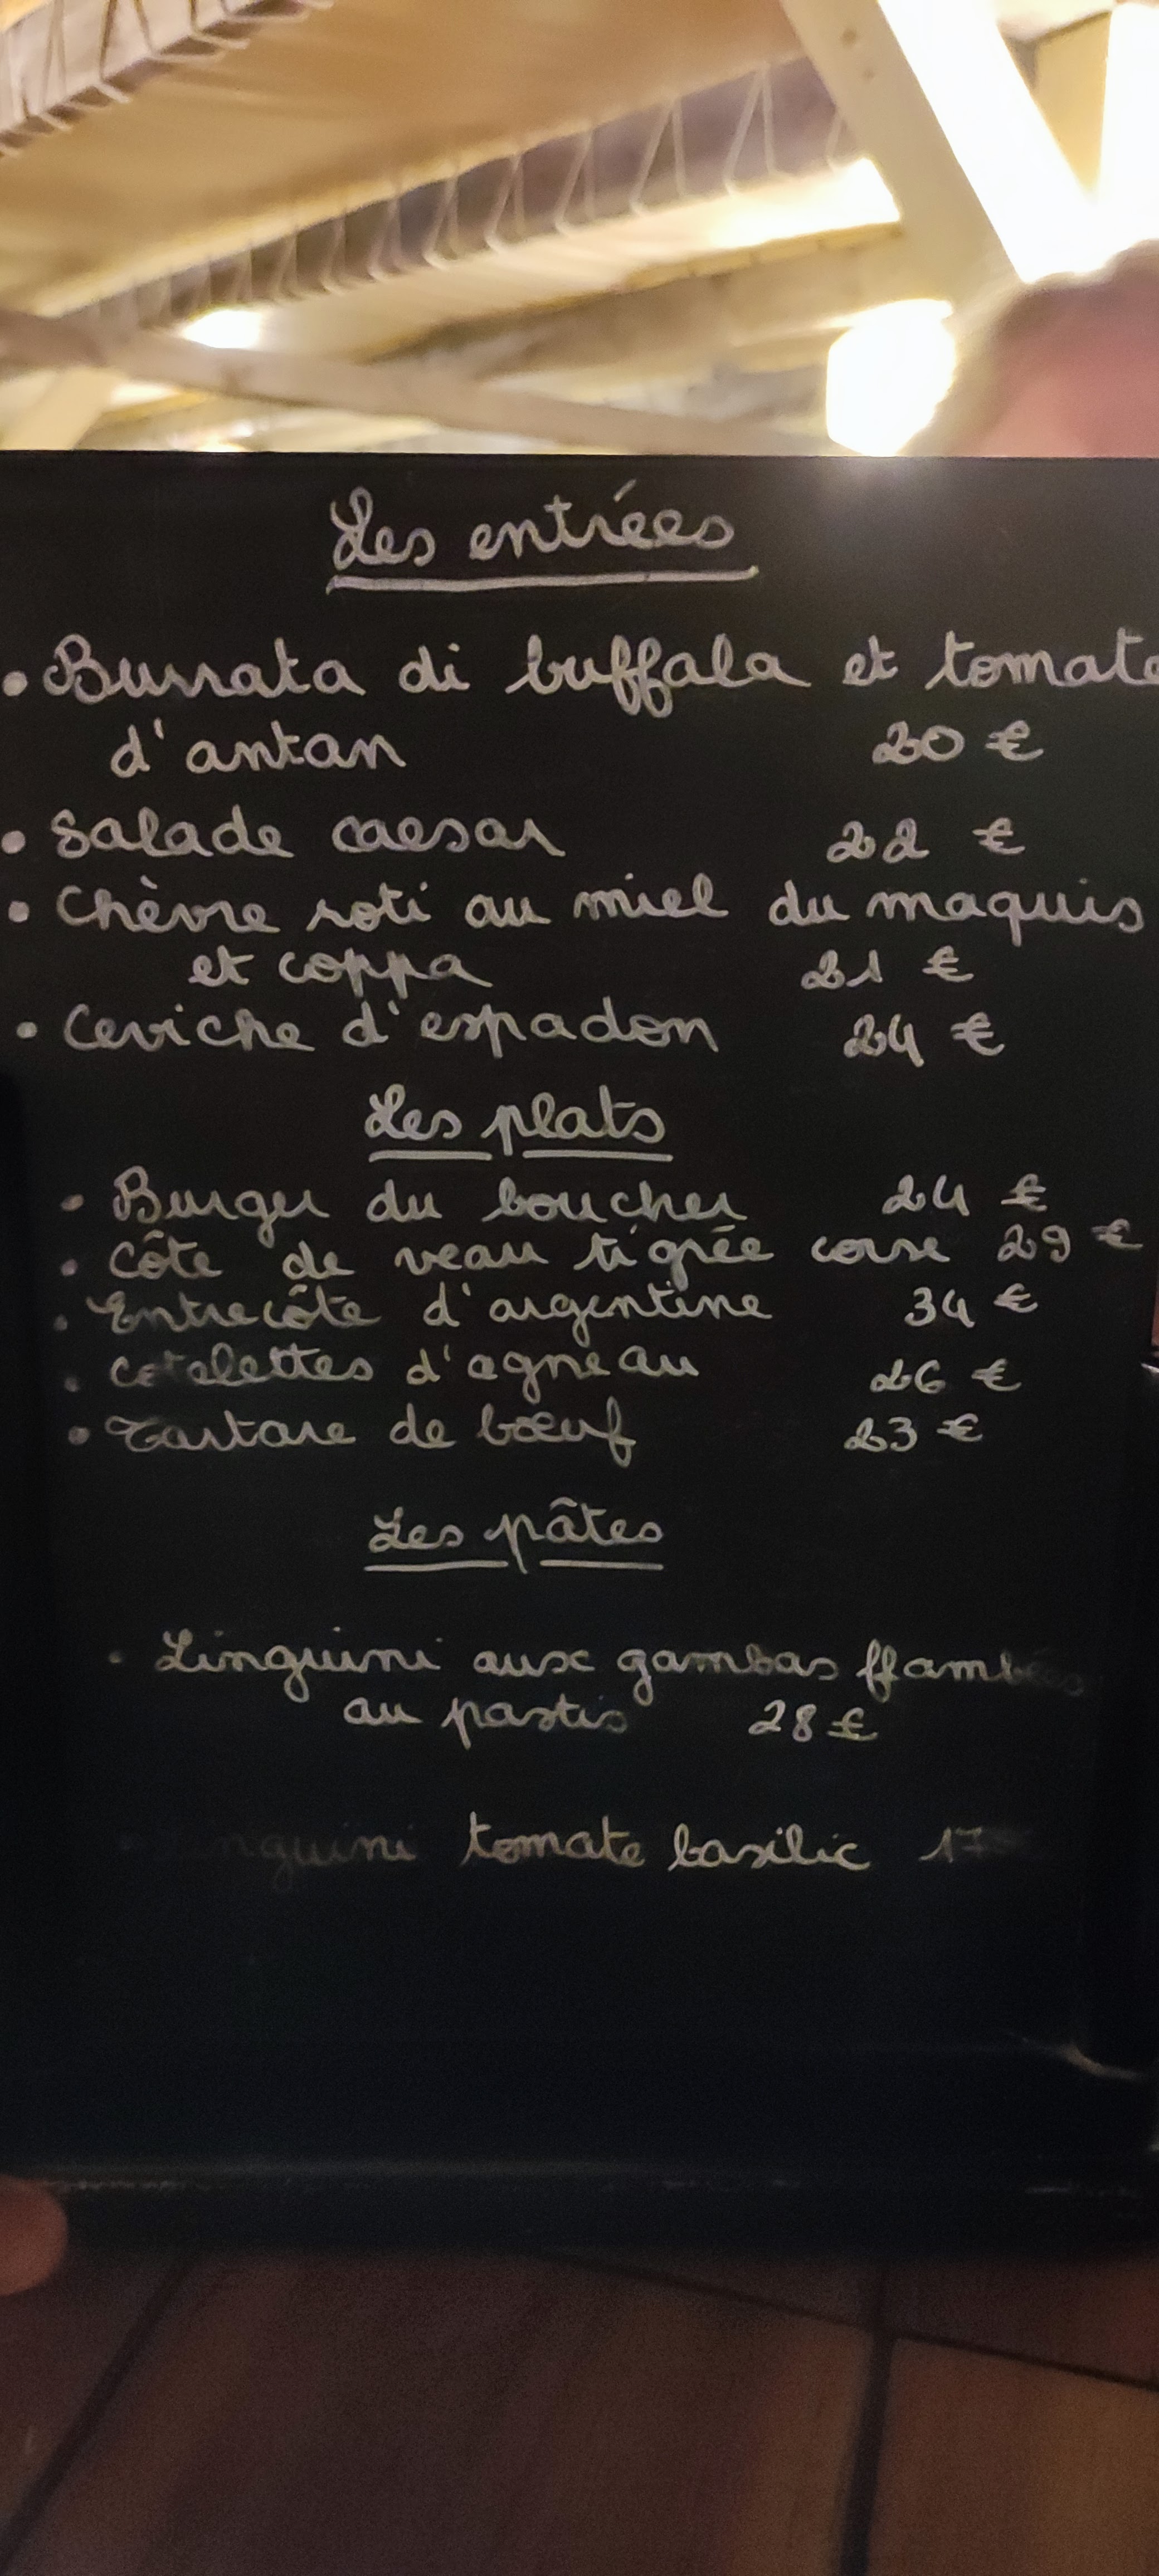 Les entrées
• Burrata di buffala et tomate
d'antan 20 €
• Salade caesar 22 €
• Chèvre roti au miel du maquis
et coppa 21 €
• Ceviche d'espadon 24 €
Les plats
• Burger du boucher 24 €
• Côte de veau tigrée corse 29 €
• Entrecôte d'argentine 34 €
• cotelettes d'agneau 26 €
• Tartare de bœuf 23 €
Les pâtes
• Linguini aux gambas flambées
au pastis 28 €
• Linguini tomate basilic 17